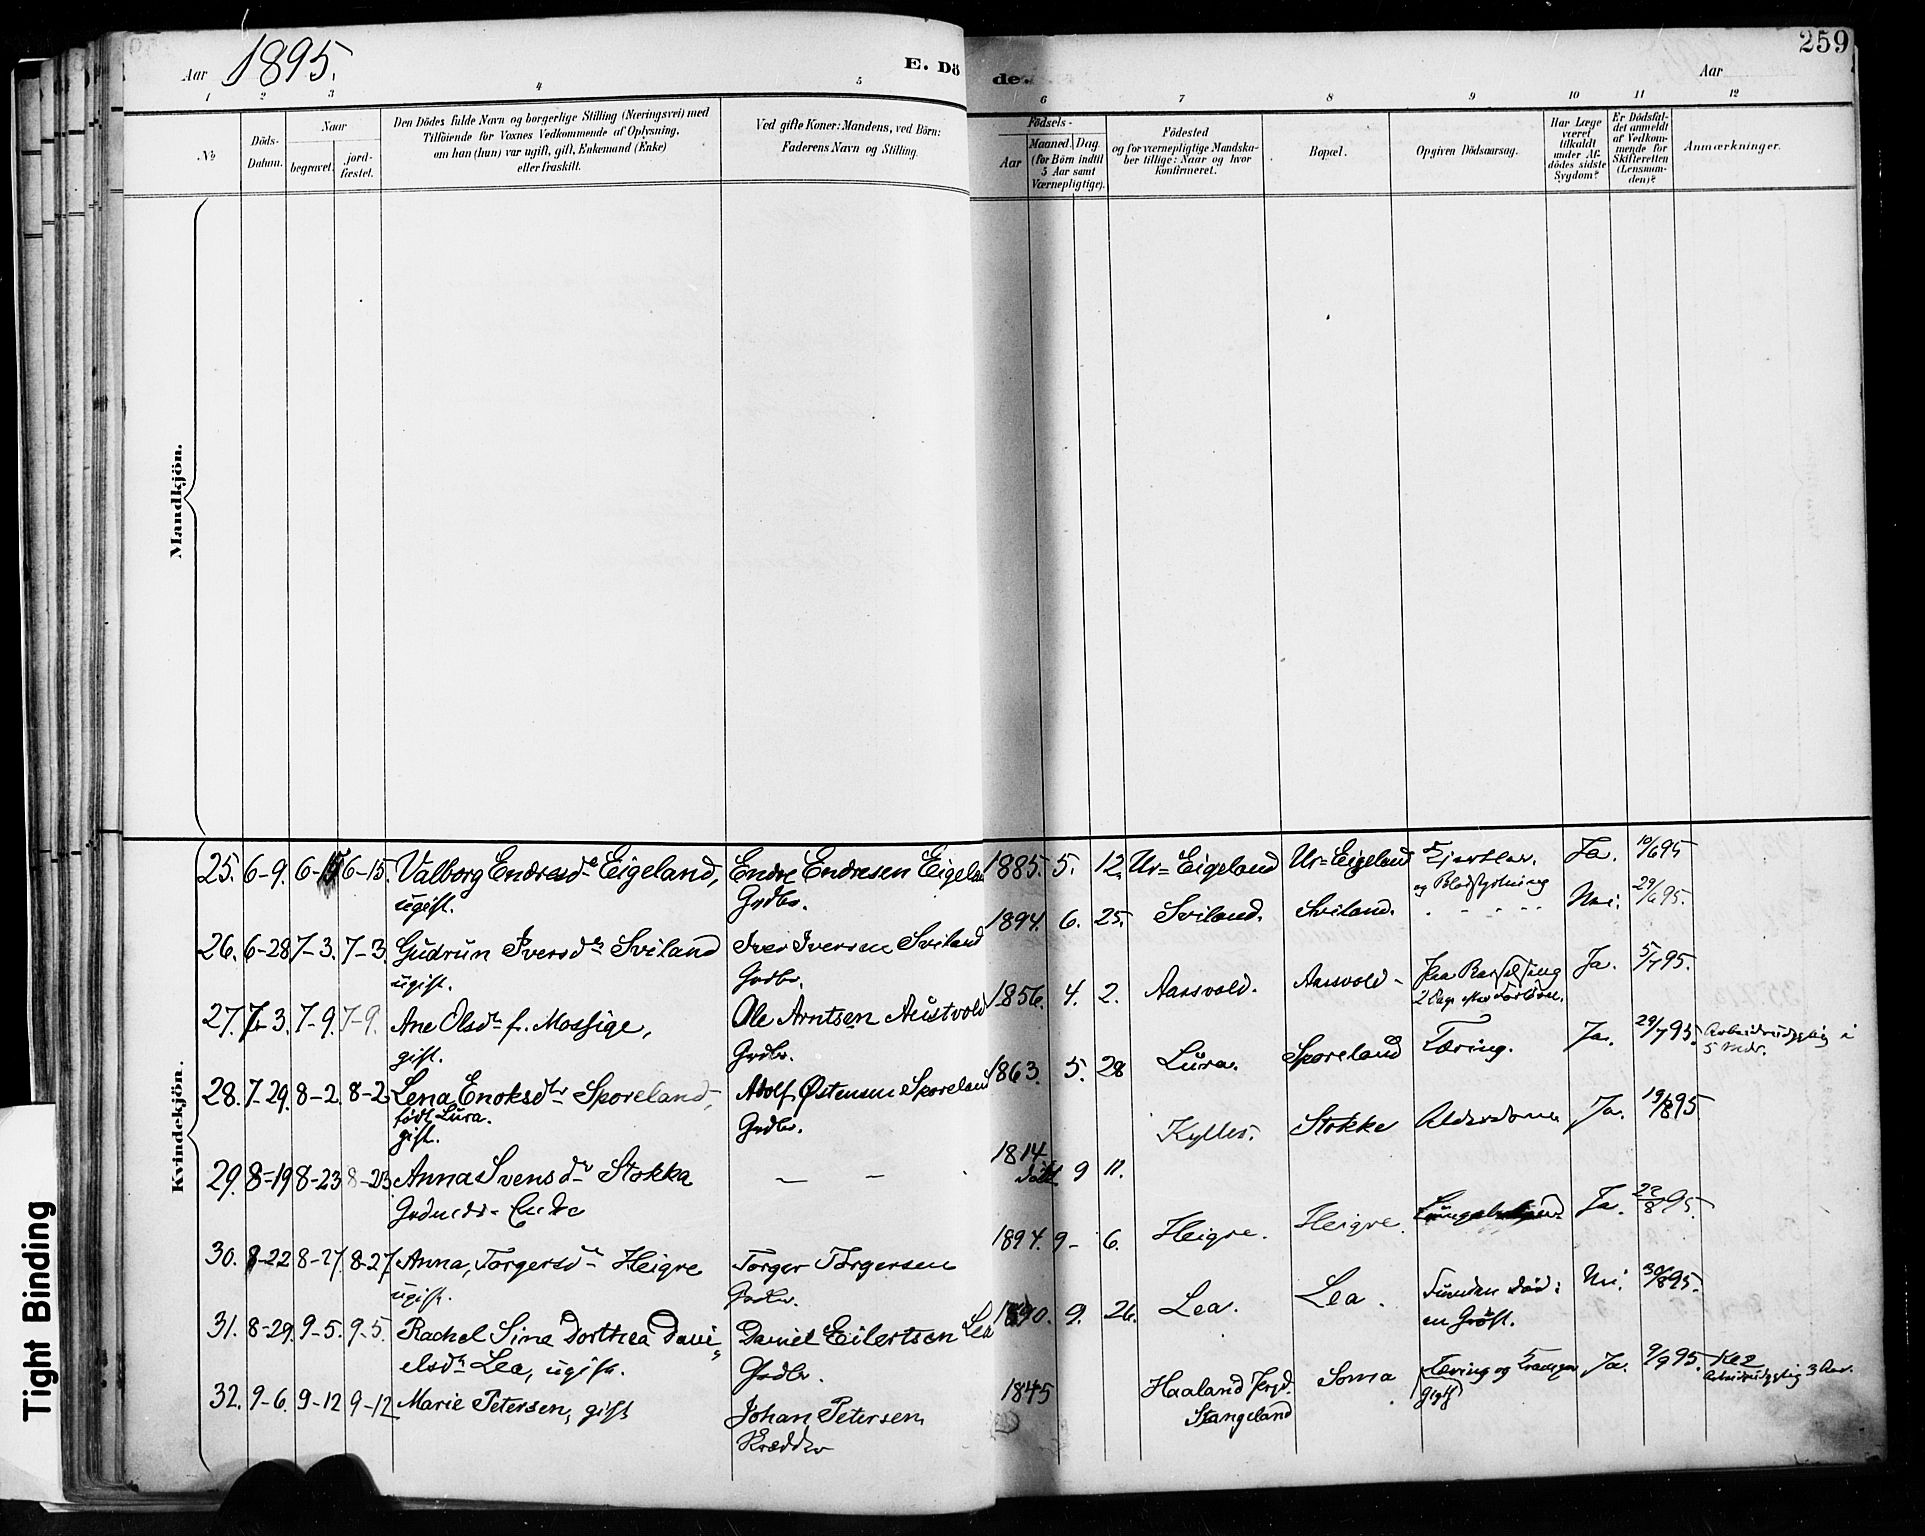 Aar 1895.
E. Dö
de.
Aar
259
1 2 3 4 5 6 7 8 9 10 11 12
No
Döds-
Datum.
Naar
begravet.
jord-
fæstet.
Den Dödes fulde Navn og borgerlige Stilling (Næringsvei) med
Tilföiende for Voxnes Vedkommende af Oplysning,
om han (hun) var ugift, gift, Enkemand (Enke)
eller fraskilt.
Ved gifte Koner: Mandens, ved Börn:
Faderens Navn og Stilling.
Födsels-
Aar
Maaned. Dag.
(for Börn indtil
5 Aar samt
Værnepligtige).
Födested
og for værnepligtige Mandska-
ber tillige: Naar og hvor
konfirmeret.
Bopæl.
Opgiven Dödsaarsag.
Har Læge
været
tilkaldt
under Af-
dödes sidste
Sygdom?
Er Dödsfal-
det anmeldt
af Vedkom-
mende for
Skifteretten
(Lensman-
den)?
Anmærkninger.
Mandkjön.
Kvindekjön.
25. 6-9. 6-15 6-15. Valborg Endresdr Eigeland, Endre Endresen Eigeland 1885. 5. 12. Ur= Eigeland Ur= Eigeland Hjerteln. Ja. 10/6 95
ugift. Grdbr. og Blodstyrtning
26. 6-28 7-3. 7-3. Gudrun Iversdr Sviland Iver Iversen Sviland 1894. 6. 25. Sviland. Sviland. - - - - Nei. 29/6 95.
ugift. Grdbr.
27. 7-3. 7-9. 7-9. Ane Olsdr f. Mossige, Ole Arntsen Austvold 1856. 4. 2. Aarsvold. Aarsvold- Paa Barselseng Ja. 5/7 95.
gift. Grdbr. 2 Dage efter Forløsn.
28. 7-29. 8-2. 8-2. Lena Enoksdtr Sporeland, Adolf Østensen Sporeland 1863. 5. 28 Lura. Sporeland Tæring. Ja. 29/7 95. Arbeidsudygtig i
født Lura. 5 Mdr.
gift. Grdbr.
29. 8-19 8-23 8-23 Anna Svensdr Stokka — — 1814 9 11. Kylles. Stokke Alderdom Ja. 19/8 95
døbt
Grdmds- Enke
30. 8-22 8-27. 8-27. Anna, Torgersdr Heigre Torger Torgersen 1894. 9- 6. Heigre. Heigre. Ja. 22/8 95.
ugift. Grdbr.
31. 8-29. 9-5. 9-5. Rachel Sine Dorthea Dani- Daniel Eilertsen Lea 1890. 9. 26. Lea. Lea. Funden død i Nei. 30/8 95.
elsdr Lea, ugift. Grdbr. en Grøft.
32. 9-6. 9-12 9-12 Marie Petersen, gift Johan Petersen, 1845 Haaland Prgd. Soma Tæring og Ja. 9/9 95.
Kræddler Stangeland Gigt Arbeidsudygtig 3 Aar.
Tight Binding